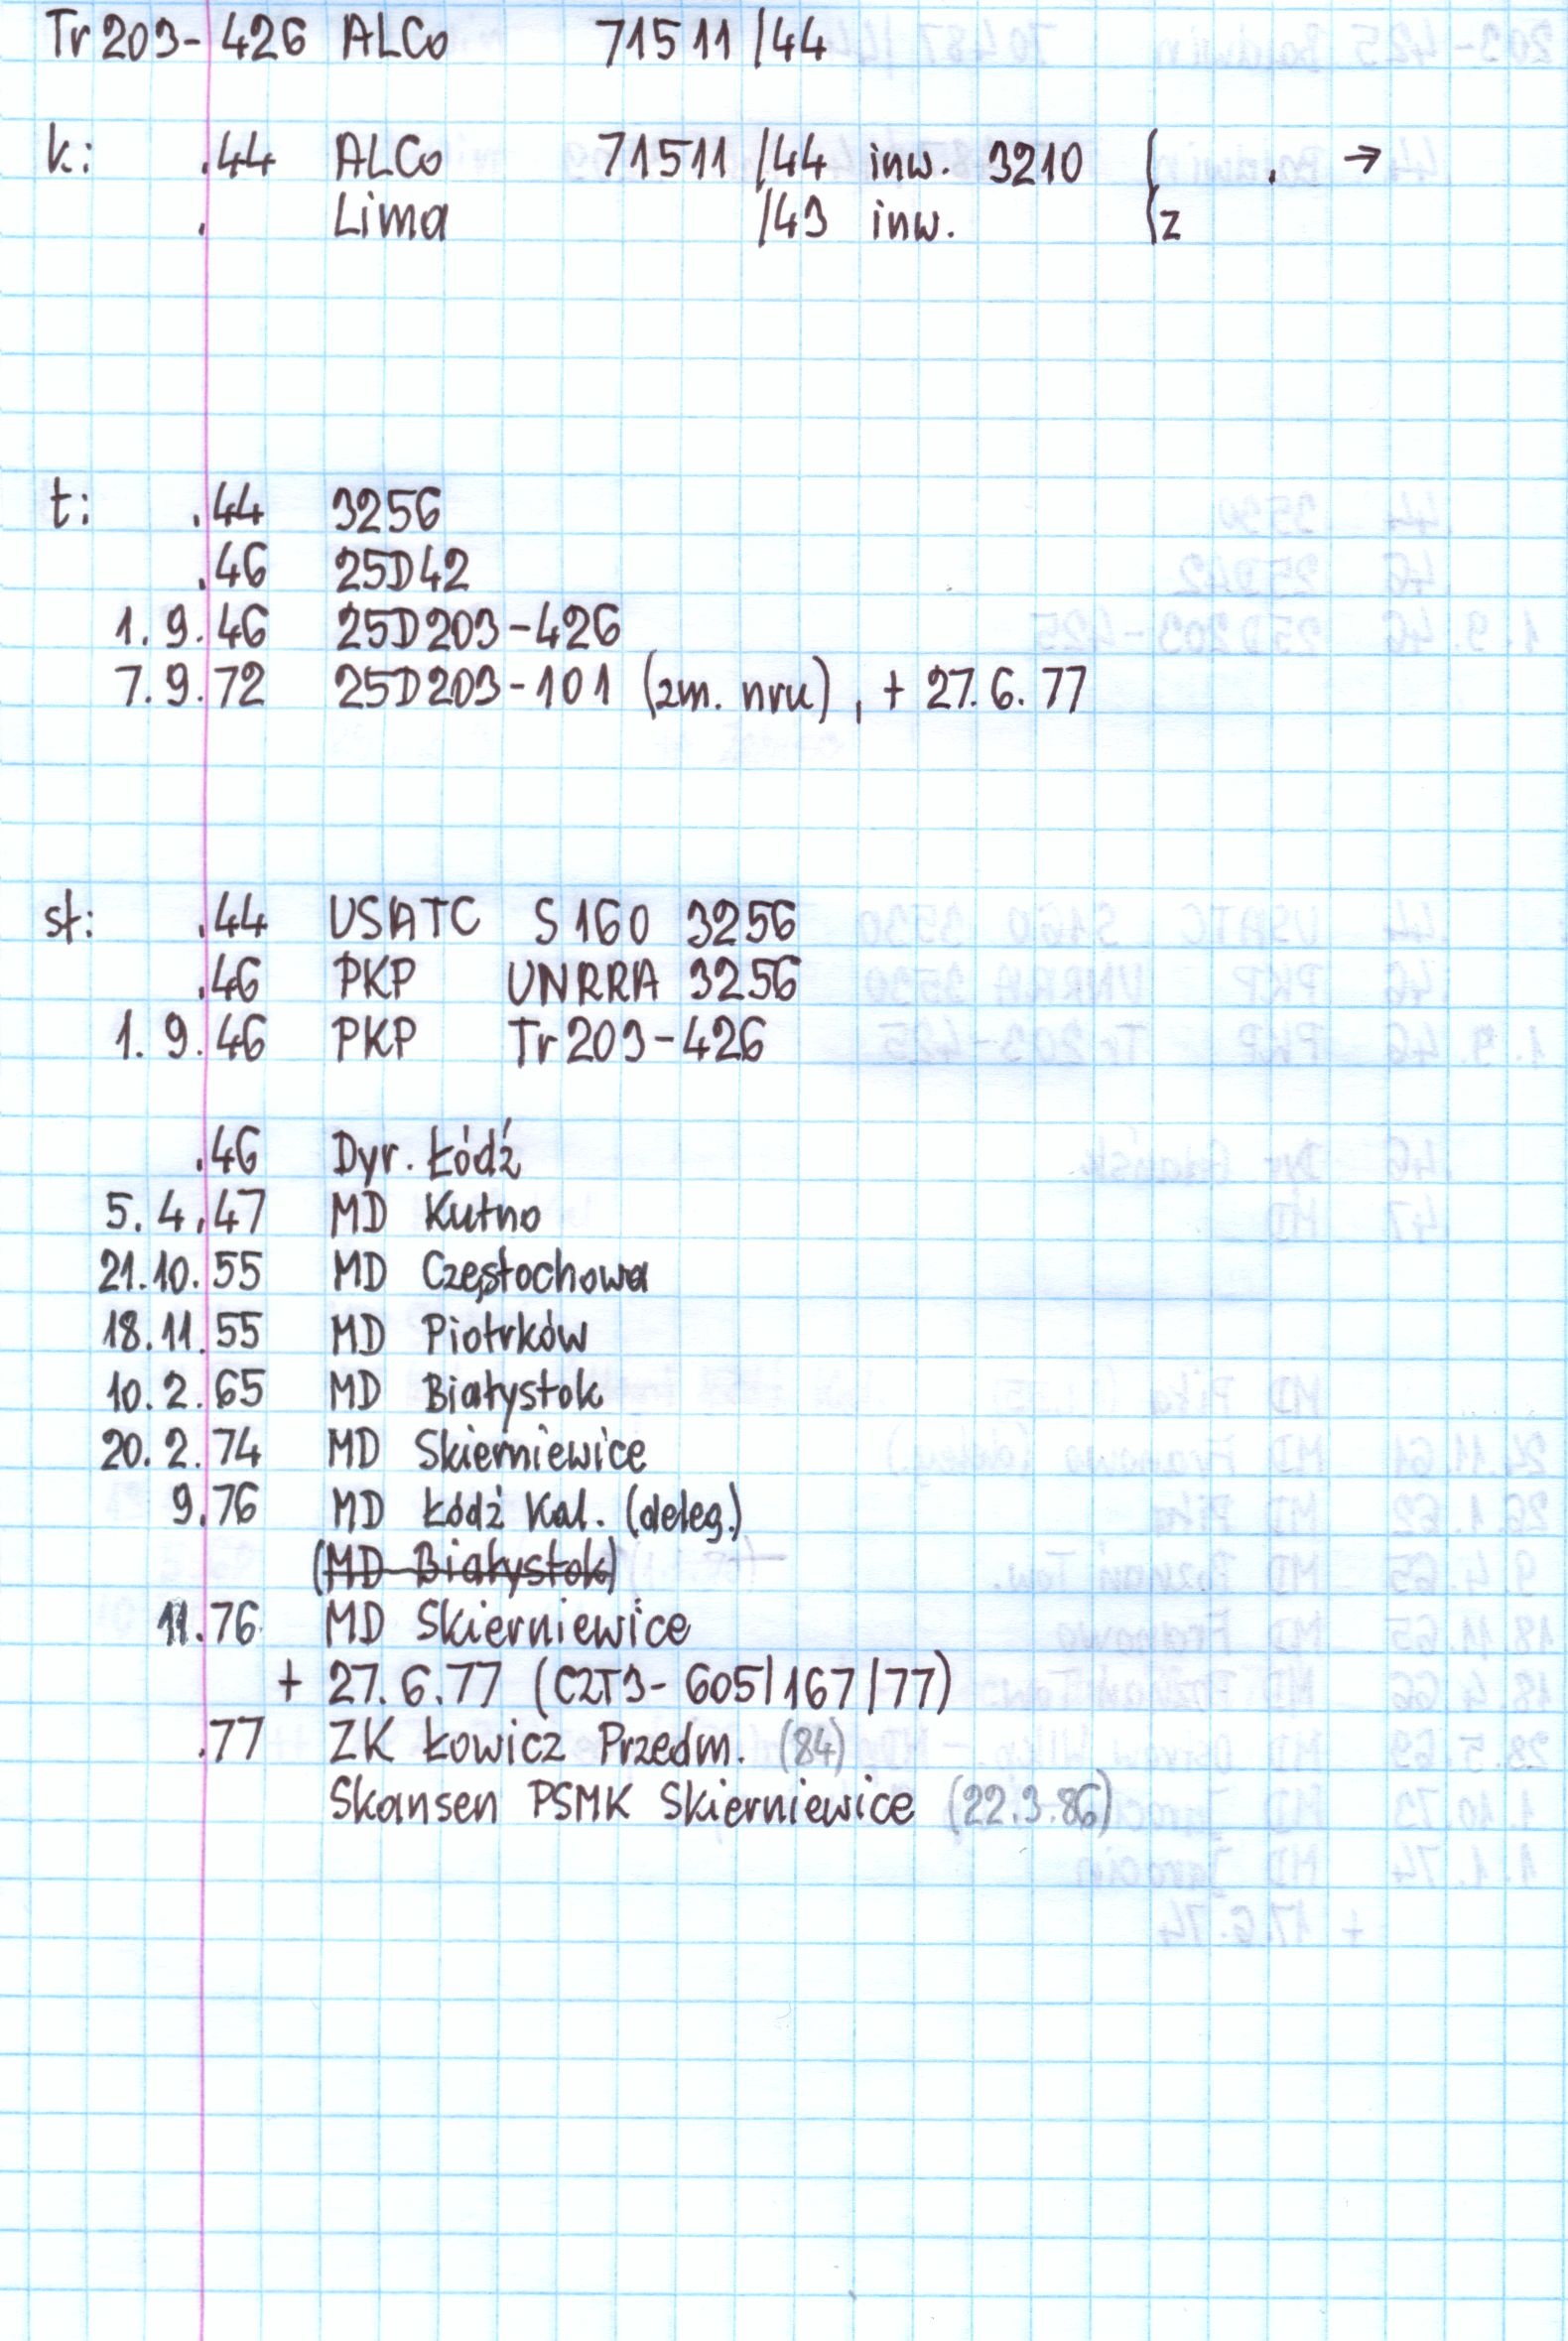 Tr 203-426 ALCo 71511/44
k: .44 ALCo 71511/44 inw. 3210 { . →
. Lima /43 inw. {z
t: .44 3256
.46 25D42
1.9.46 25D203-426
7.9.72 25D203-101 (zm. nru), + 27.6.77
st: .44 USATC S160 3256
.46 PKP UNRRA 3256
1.9.46 PKP Tr 203-426
.46 Dyr. Łódź
5.4.47 MD Kutno
21.10.55 MD Częstochowa
18.11.55 MD Piotrków
10.2.65 MD Białystok
20.2.74 MD Skierniewice
9.76 MD Łódź Kal. (deleg.)
(MD Białystok)
11.76 MD Skierniewice
+ 27.6.77 (CZT3-605/167/77)
.77 ZK Łowicz Przedm. (84)
Skansen PSMK Skierniewice (22.3.86)